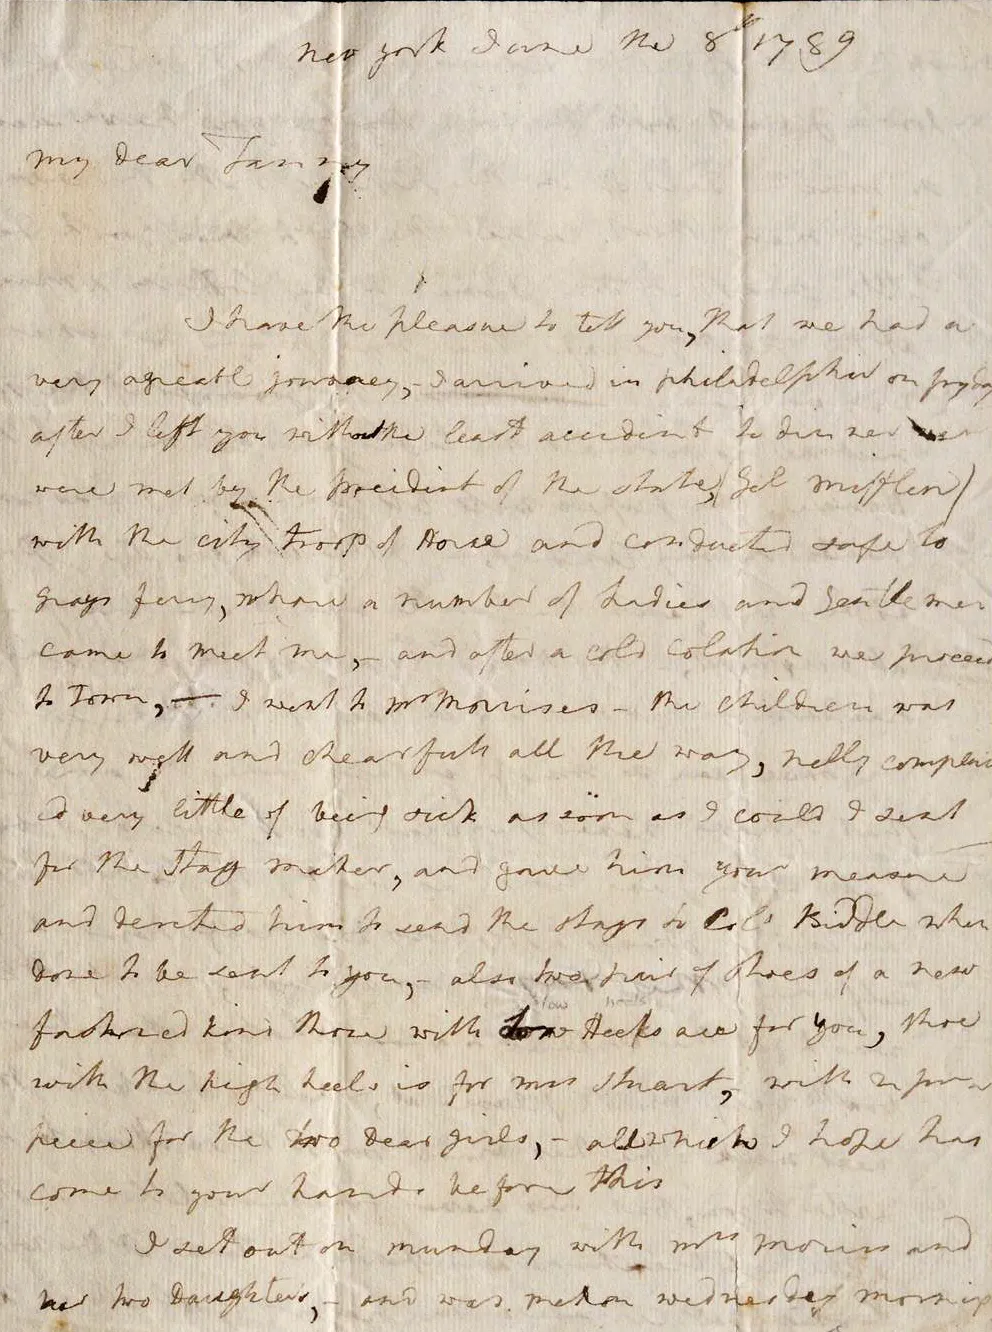 New york June the 8th 1789
my dear Fanny
I have the pleasure to tell you, that we had a
very agreable journey, - I arrived in philadelphia on fryday
after I left you without the least accident to dinner
were met by the president of the state, (Gel mifflen)
with the city troop of Horse and conducted safe to
grays ferry, whare a number of Ladies and gentlemen
came to meet me, - and after a cold colation we proceed
to Town, - I went to Mr Morrises - the children was
very well and chearfull all the way, nelly complain
ed very little of being sick as soon as I could I sent
for the Stay maker, and gave him your measure
and derected him to send the stays to Cols Biddle when
done to be sent to you, - also two pair of shoes of a new
fashoned kind those with low Heels are for you, those
with the high heels is for mrs Stuart, with a
peice for the two dear girls, - all which I hope has
come to your hands before this
I set out on munday with mrs morris and
her two Daughters, - and was met on wednesday morning